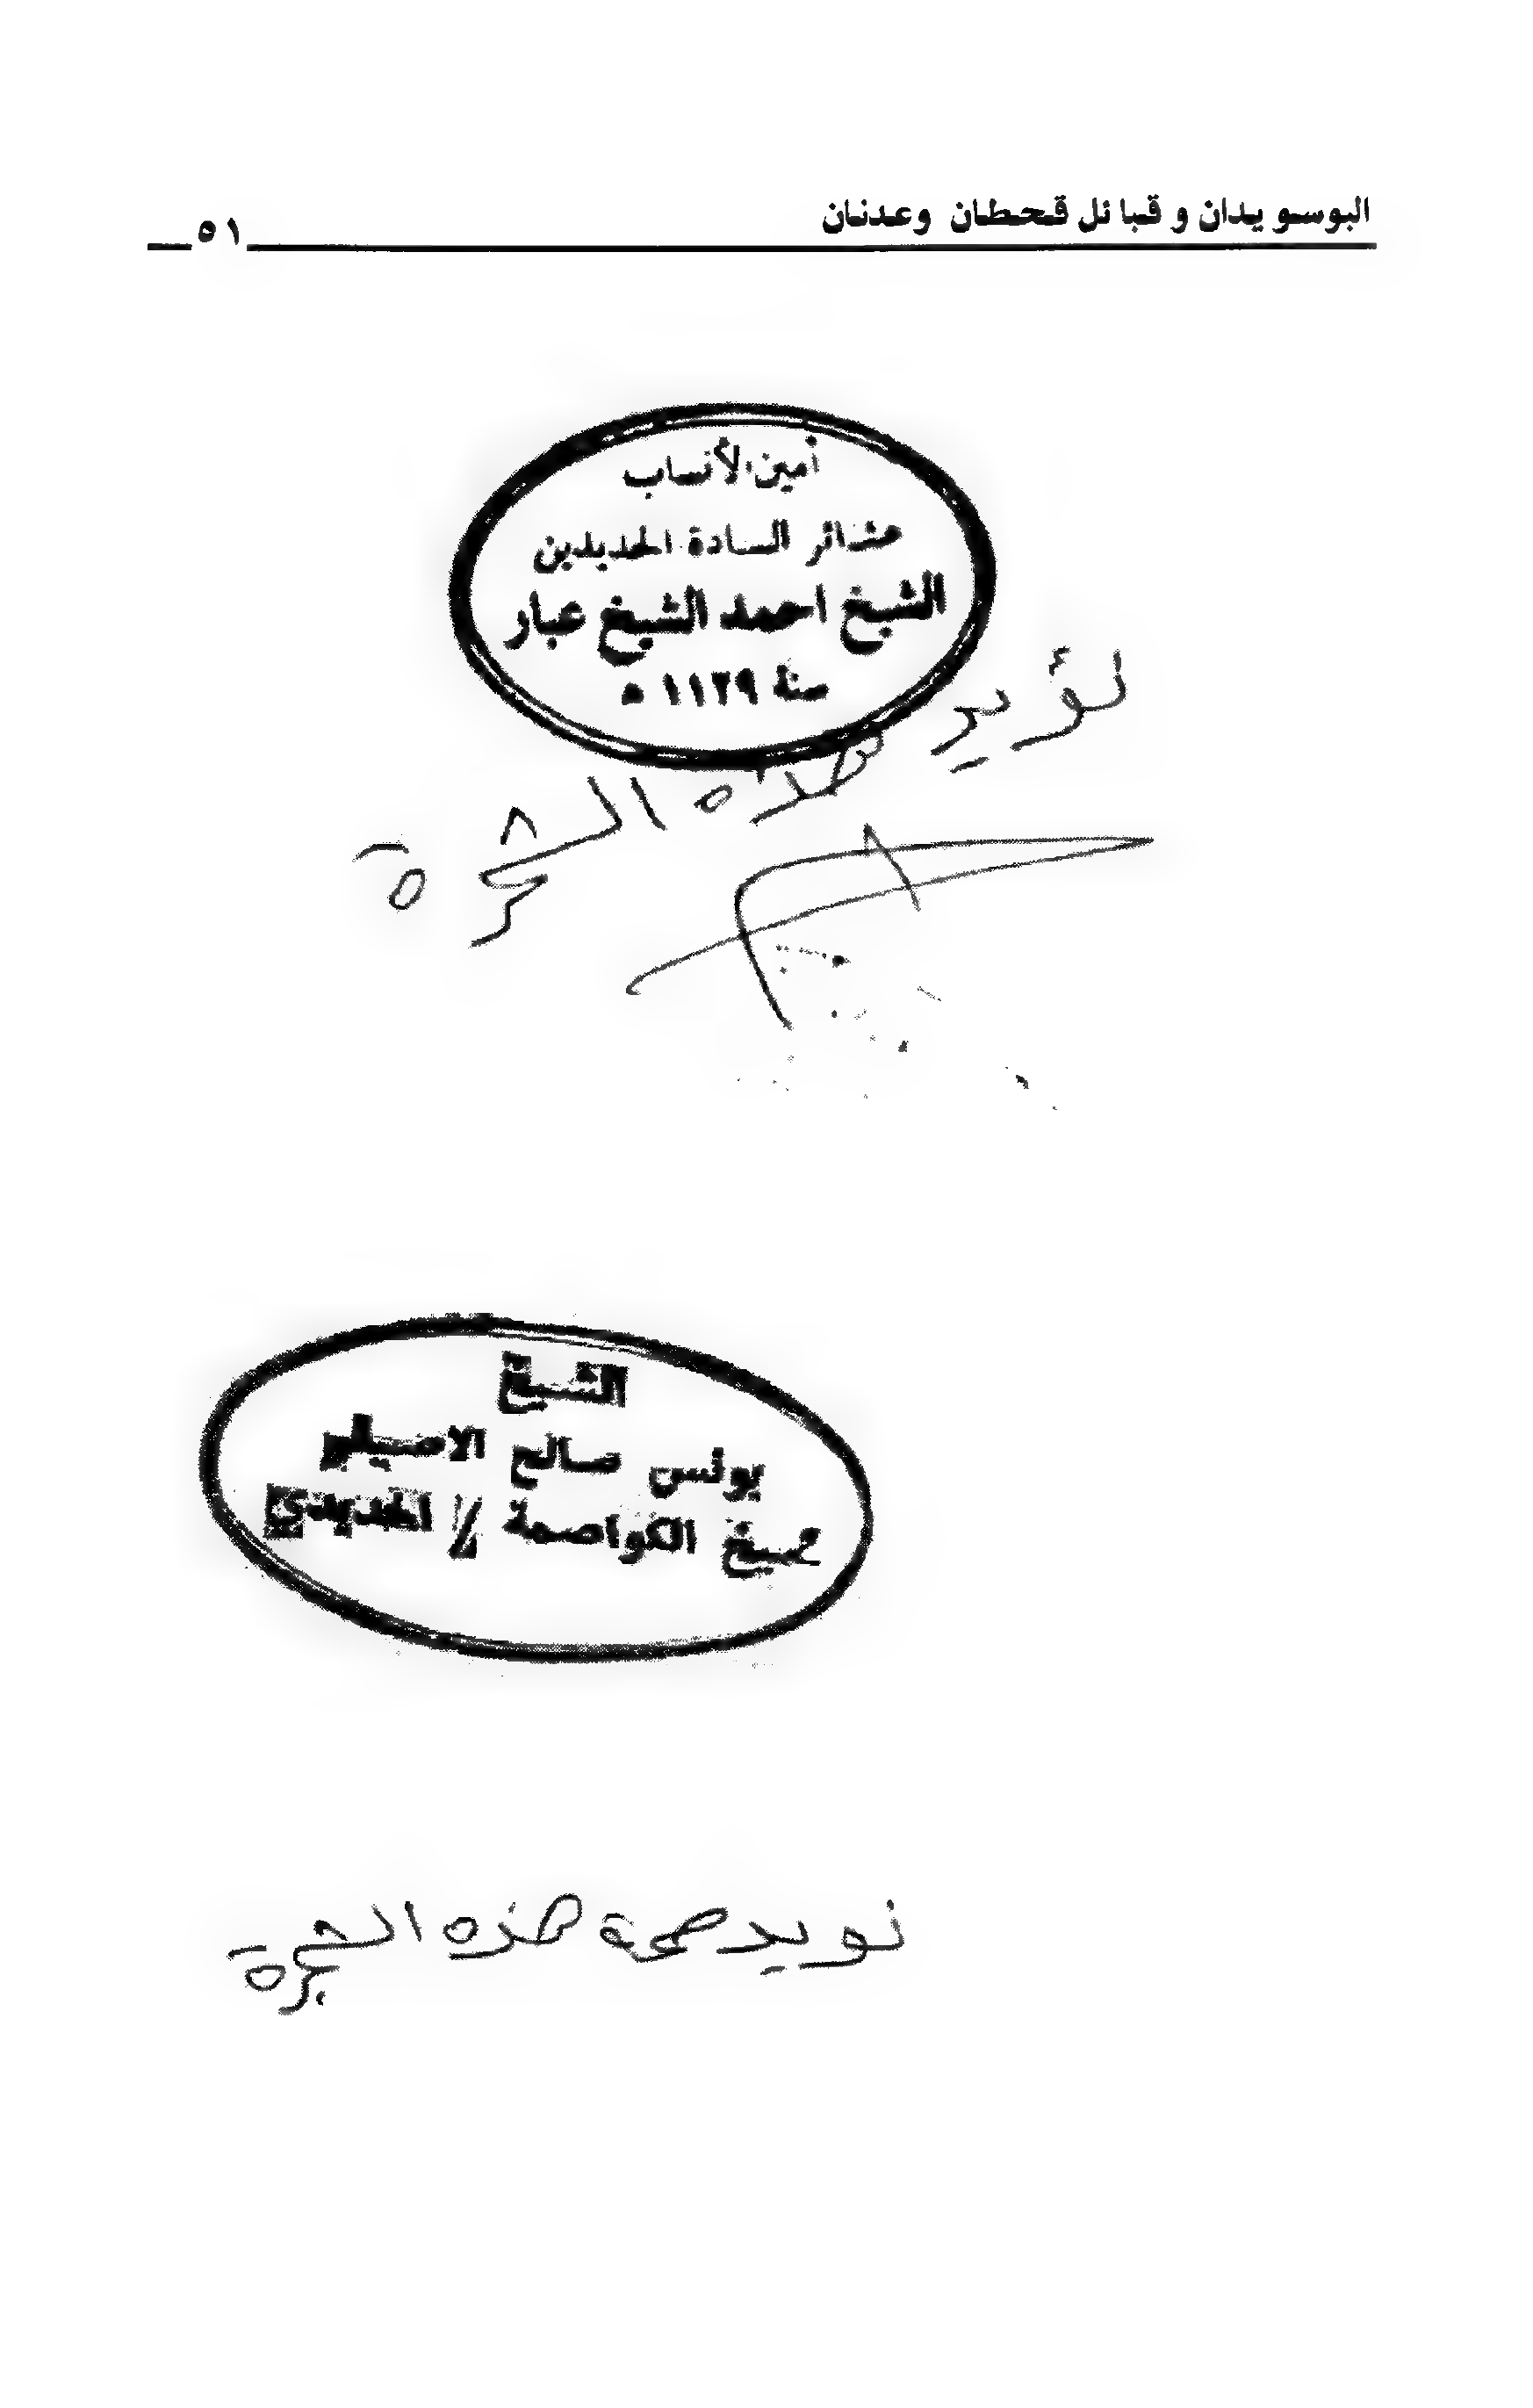 البوسويدان و قبائل قحطان وعدنان
٥١
أمين الأنساب
عشائر السادة الحديديين
الشيخ احمد الشيخ عبار
سنة ١١٢٩ ه
نؤيد هذه الشجرة
الشيخ
يونس صالح الاصيلي
شيخ الكواصمة / الحديدي
نويد صحة هذه الشجرة